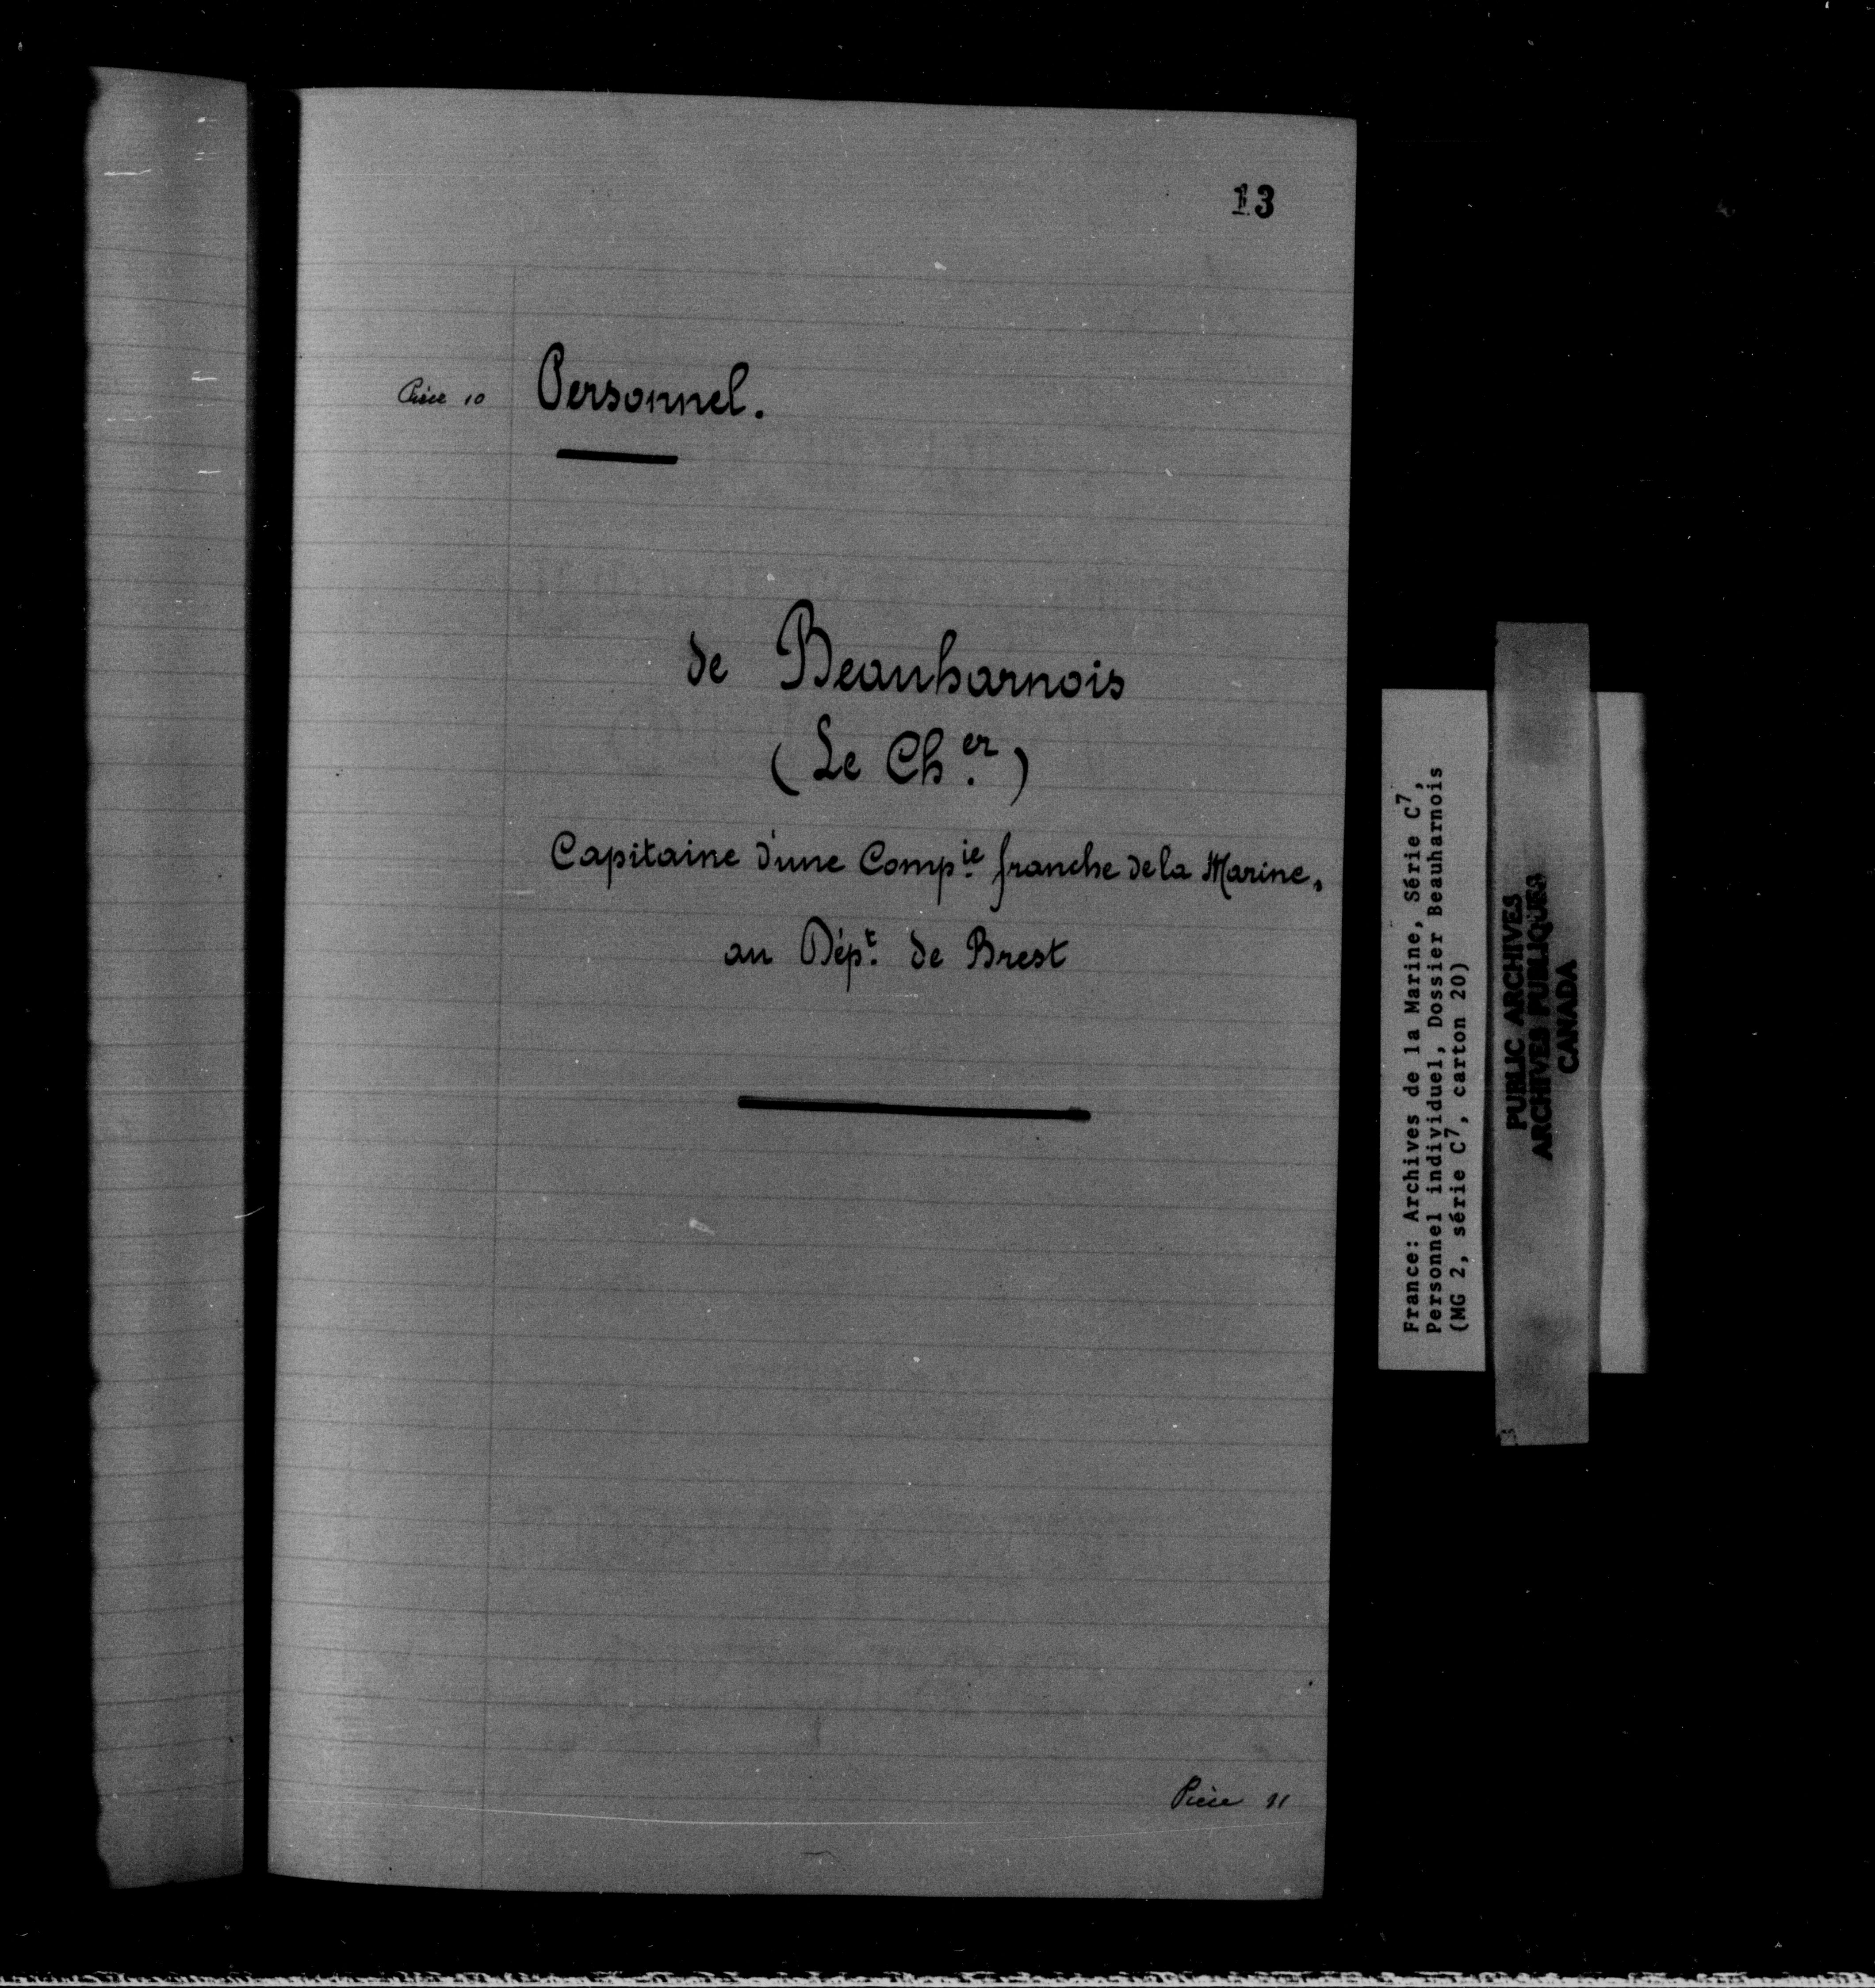 13
Pièce 10 Personnel.
de Beauharnois
(Le Ch.er)
Capitaine d'une Comp.ie franche de la Marine,
au Dép.t de Brest
Pièce 11
France: Archives de la Marine, Série C7,
Personnel individuel, Dossier Beauharnois
(MG 2, série C7, carton 20)
PUBLIC ARCHIVES
ARCHIVES PUBLIQUES
CANADA